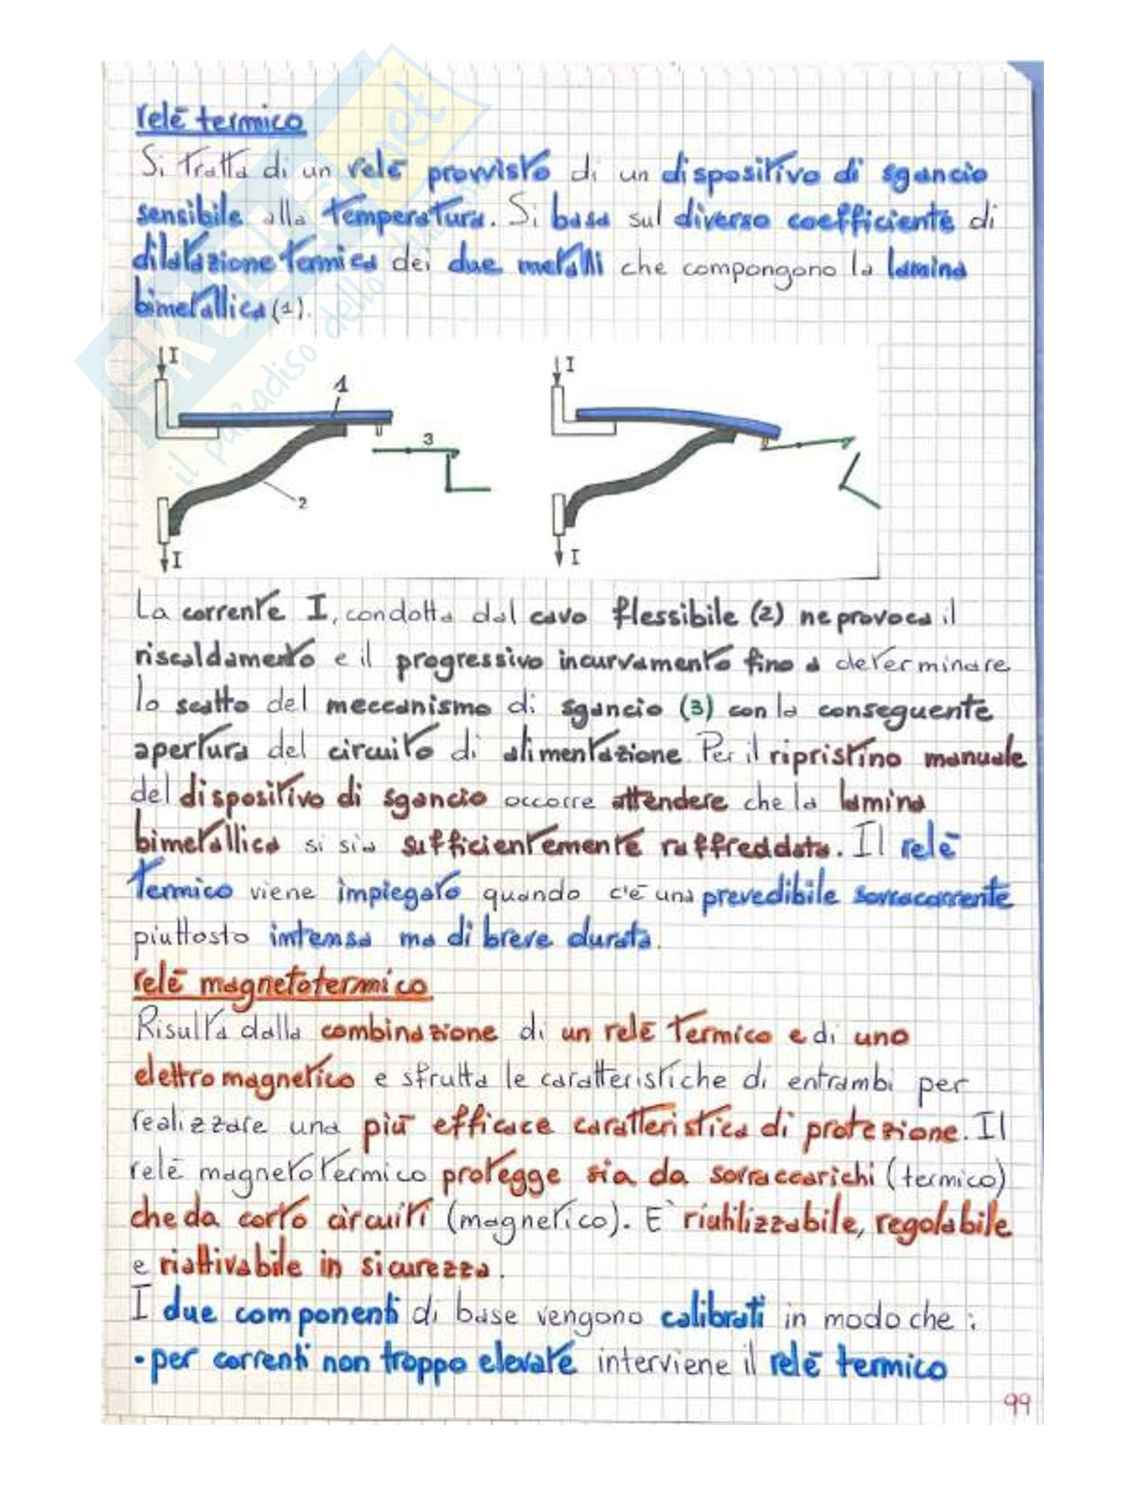 relē termico
Si tratta di un relē provvisto di un dispositivo di sgancio
sensibile alla temperatura. Si basa sul diverso coefficiente di
dilatazione termica dei due metalli che compongono la lamina
bimetallica (1).
I
1
3
2
I
I
I
La corrente I, condotta dal cavo flessibile (2) ne provoca il
riscaldamento e il progressivo incurvamento fino a determinare
lo scatto del meccanismo di sgancio (3) con la conseguente
apertura del circuito di alimentazione. Per il ripristino manuale
del dispositivo di sgancio occorre attendere che la lamina
bimetallica si sia sufficientemente raffreddata. Il relē
termico viene impiegato quando c'ē una prevedibile sovracorrente
piuttosto intensa ma di breve durata.
relē magnetotermico
Risulta dalla combinazione di un relē termico e di uno
elettromagnetico e sfrutta le caratteristiche di entrambi per
realizzare una piū efficace caratteristica di protezione. Il
relē magnetotermico protegge sia da sovraccarichi (termico)
che da corto circuiti (magnetico). E` riutilizzabile, regolabile
e riattivabile in sicurezza.
I due componenti di base vengono calibrati in modo che:
• per correnti non troppo elevate interviene il relē termico
99
il paradiso dello